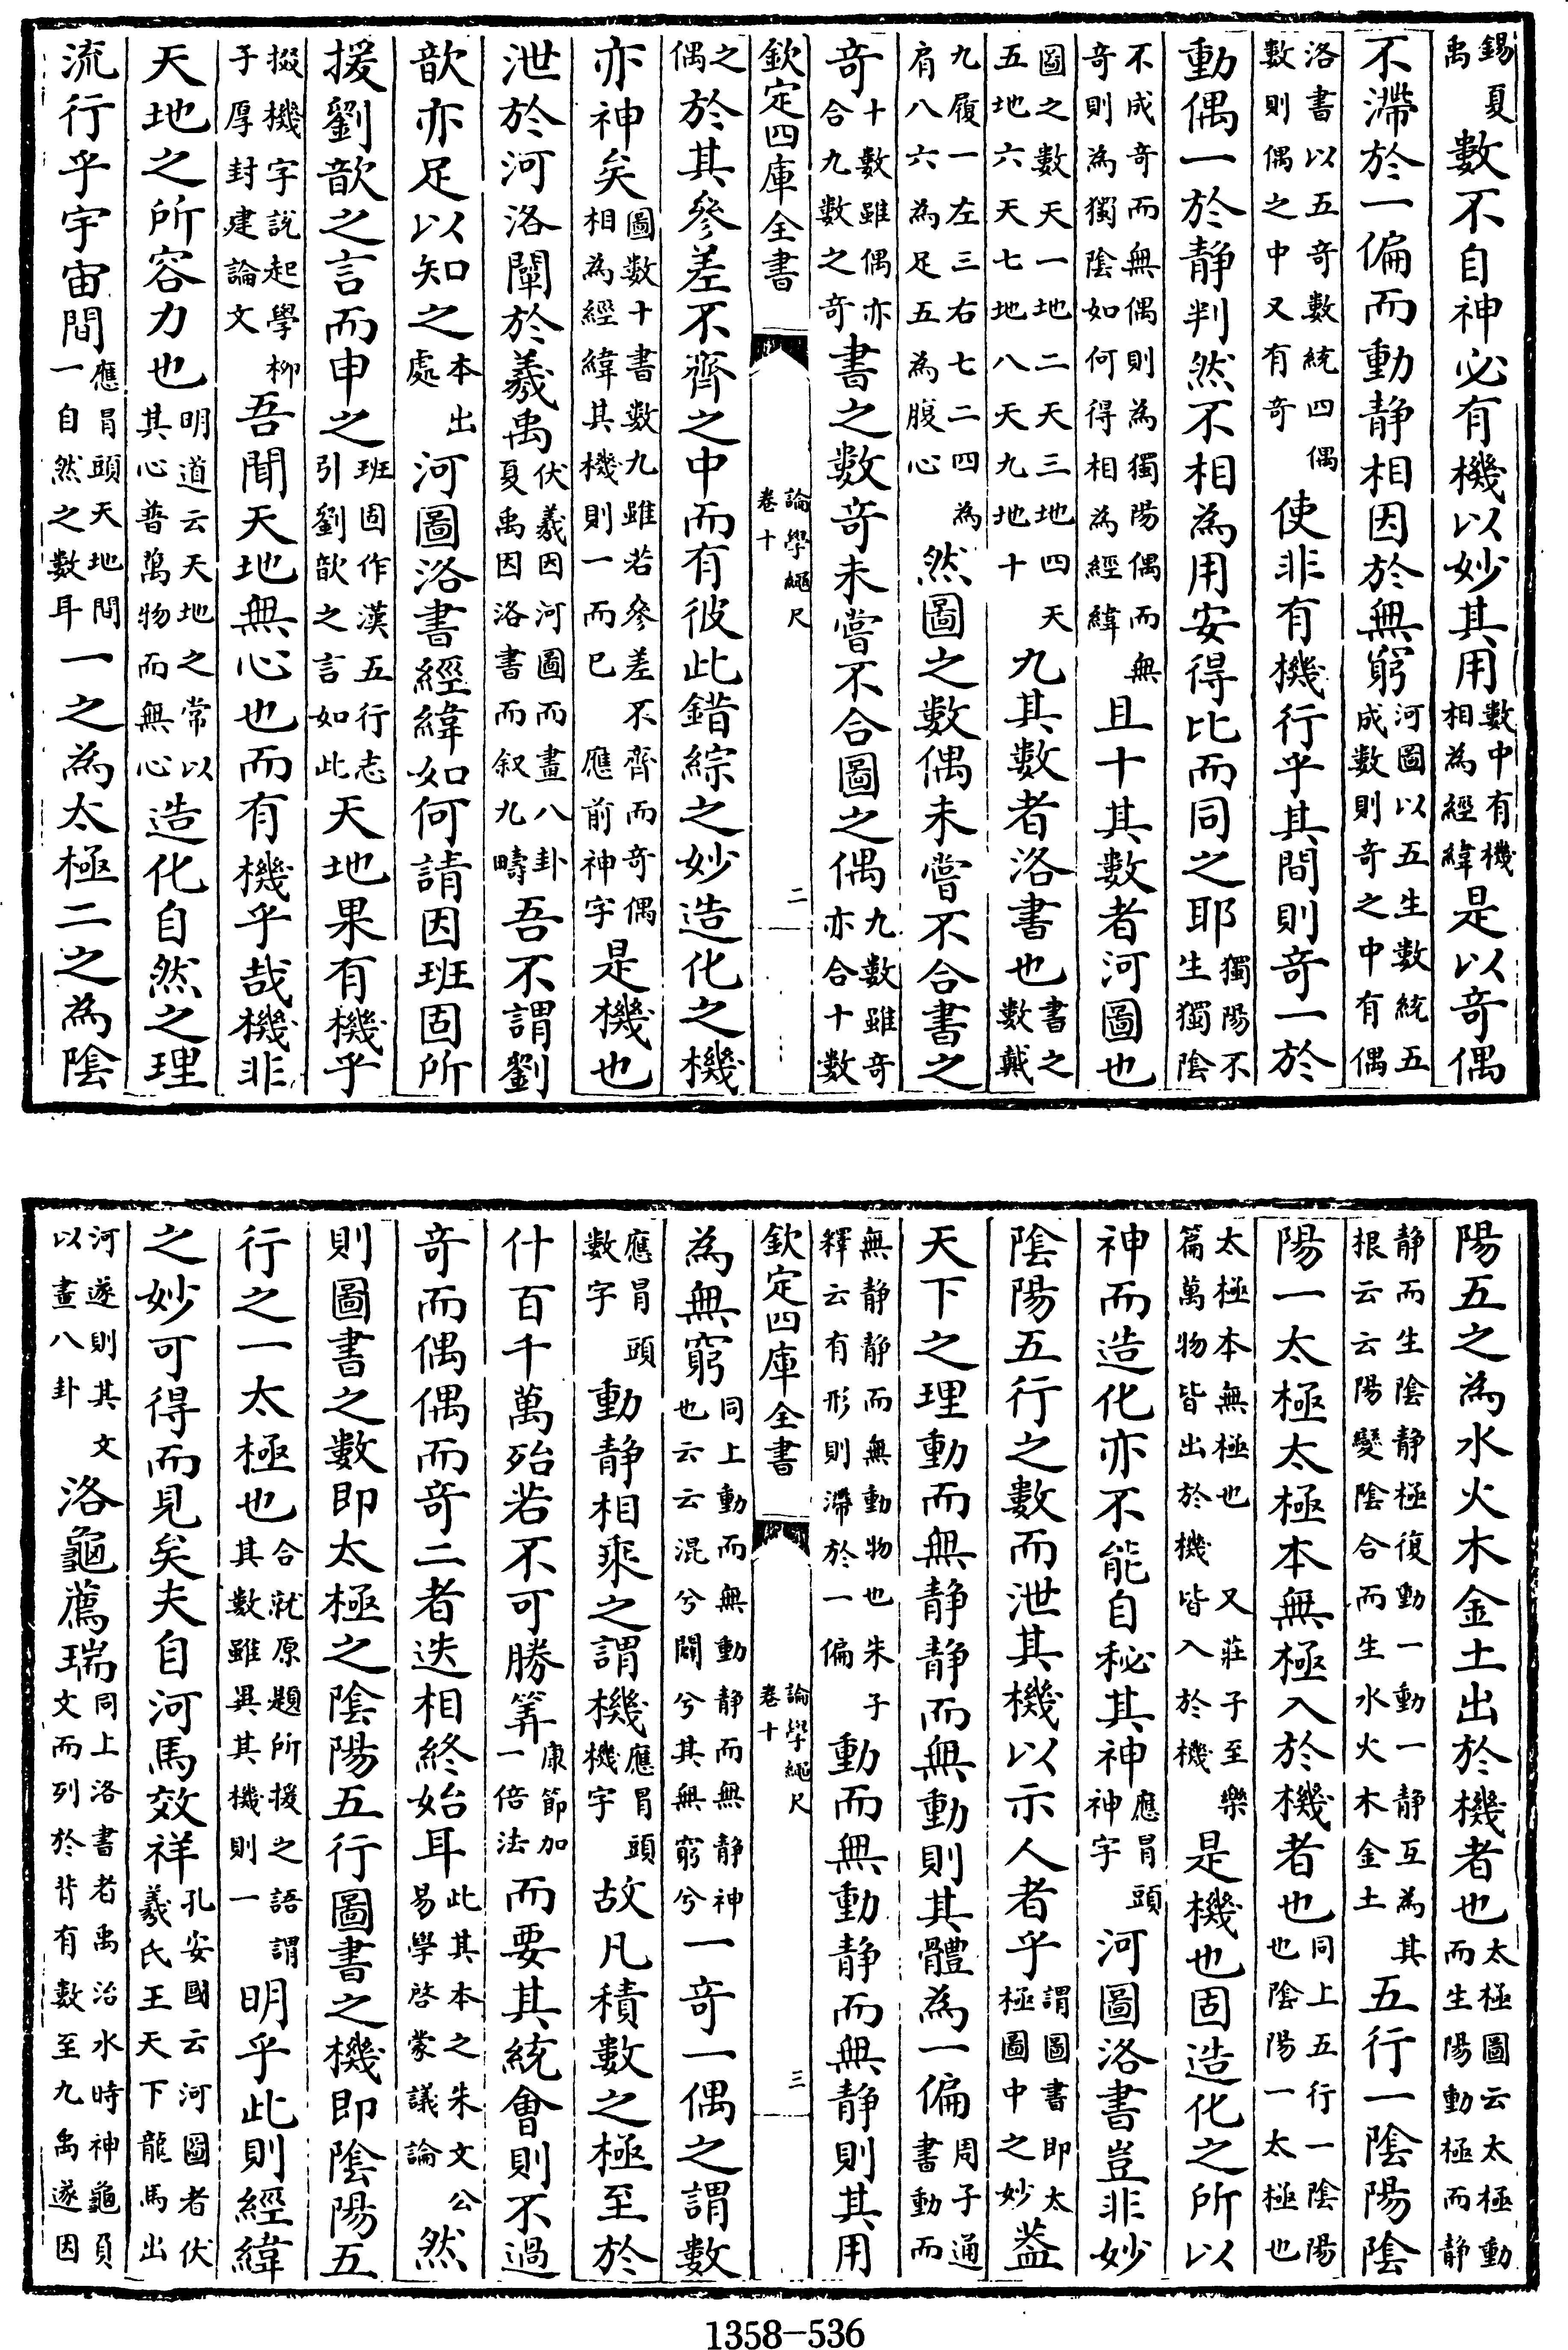 錫夏禹數不自神必有機以妙其用數中有機相為經緯是以奇偶
不滯於一偏而動静相因於無窮河圖以五生數統五成數則奇之中有偶
洛書以五奇數統四偶數則偶之中又有奇使非有機行乎其間則奇一於
動偶一於静判然不相為用安得比而同之耶獨陽不生獨陰
不成奇而無偶則為獨陽偶而無奇則為獨陰如何得相為經緯且十其數者河圖也
圖之數天一地二天三地四天五地六天七地八天九地十九其數者洛書也書之數戴
九履一左三右七二四為肩八六為足五為腹心然圖之數偶未嘗不合書之
奇十數雖偶亦合九數之奇書之數奇未嘗不合圖之偶九數雖奇亦合十數
欽定四庫全書 論學繩尺 卷十 二
之偶於其參差不齊之中而有彼此錯綜之妙造化之機
亦神矣圖數十書數九雖若參差不齊而奇偶相為經緯其機則一而已應前神字是機也
泄於河洛闡於羲禹伏羲因河圖而畫八卦夏禹因洛書而叙九疇吾不謂劉
歆亦足以知之本出處河圖洛書經緯如何請因班固所
援劉歆之言而申之班固作漢五行志引劉歆之言如此天地果有機乎
掇機字說起學柳子厚封建論文吾聞天地無心也而有機乎哉機非
天地之所容力也明道云天地之常以其心普萬物而無心造化自然之理
流行乎宇宙間應冒頭天地間一自然之數耳一之為太極二之為陰
陽五之為水火木金土出於機者也太極圖云太極動而生陽動極而静
静而生陰静極復動一動一静互為其根云云陽變陰合而生水火木金土五行一陰陽陰
陽一太極太極本無極入於機者也同上五行一陰陽也陰陽一太極也
太極本無極也又莊子至樂篇萬物皆出於機皆入於機是機也固造化之所以
神而造化亦不能自秘其神應冒頭神字河圖洛書豈非妙
陰陽五行之數而泄其機以示人者乎謂圖書即太極圖中之妙葢
天下之理動而無静静而無動則其體為一偏周子通書動而
無静静而無動物也朱子釋云有形則滯於一偏動而無動静而無静則其用
欽定四庫全書 論學繩尺 卷十 三
為無窮同上動而無動静而無静神也云云混兮闢兮其無窮兮一奇一偶之謂數
應冒頭數字動静相乘之謂機應冒頭機字故凡積數之極至於
什百千萬殆若不可勝筭康節加一倍法而要其統會則不過
奇而偶偶而奇二者迭相終始耳此其本之朱文公易學啓蒙議論然
則圖書之數即太極之陰陽五行圖書之機即陰陽五
行之一太極也合就原題所援之語謂其數雖異其機則一明乎此則經緯
之妙可得而見矣夫自河馬效祥孔安國云河圖者伏羲氏王天下龍馬出
河遂則其文以畫八卦洛龜薦瑞同上洛書者禹治水時神龜負文而列於背有數至九禹遂因
1358-536